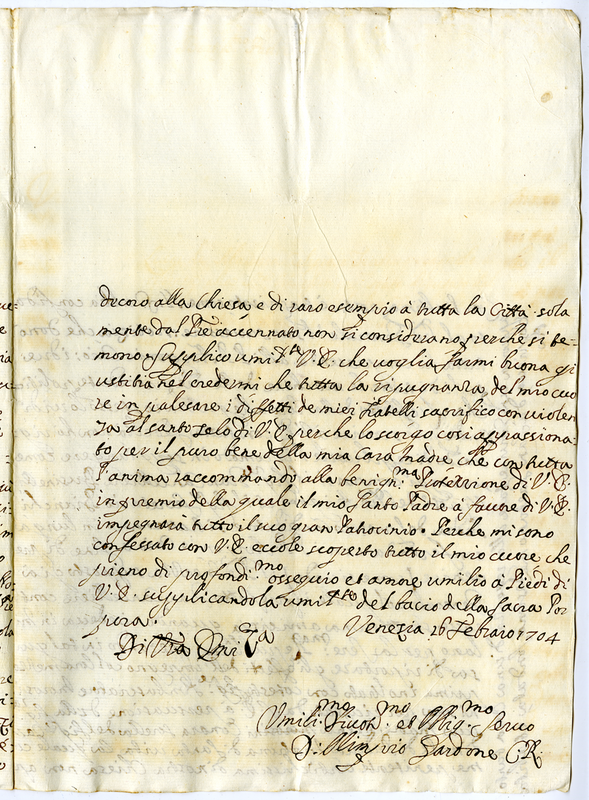 decoro alla Chiesa e di raro esempio à tutta la Città sola
mente dal Pre accennato non si considerano perche si te=
mono. Supplico umilte V. E. che voglia farmi buona gi
ustitia nel credermi che tutta la ripugnanza del mio cuo
re in palesare i diffetti de miei fratelli sacrifico con violen
za al santo zelo di V. E. perche lo scorgo così appassiona=
to per il puro bene della mia cara madre, che con tutta
l'anima raccommando alla benigma Protezzione di V. E.
in premio della quale il mio Santo Padre à favore di V. E.
impegnarà tutto il suo gran Patrocinio. Perche mi sono
confessato con V. E. eccole scoperto tutto il mio cuore, che
pieno di profondimo ossequio et amore umilio à Piedi di
V. E. supplicandola umilte del bacio della sacra Por
pora.
Venezia 16 Febraio 1704
Di Vra Emiza
Umilimo Divotmo et Obligmo servo
D. Gardone C. R.